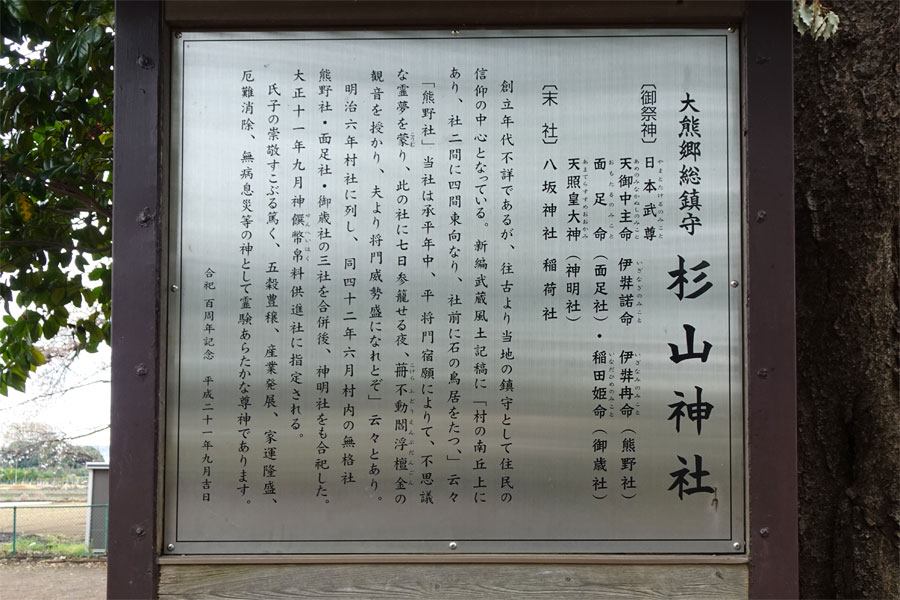 大熊郷総鎮守 杉山神社
〔御祭神〕日本武尊
天御中主命 伊弉諾命 伊弉冉命（熊野社）
面足命（面足社）・稲田姫命（御歳社）
天照皇大神（神明社）
〔末社〕八坂神社 稲荷社
創立年代不詳であるが、往古より当地の鎮守として住民の
信仰の中心となっている。新編武蔵風土記稿に「村の南丘上に
あり、社二間に四間東向なり、社前に石の鳥居をたつ、」云々
「熊野社」当社は承平年中、平 将門宿願によりて、不思議
な霊夢を蒙り、此の社に七日参籠せる夜、蒒不動閻浮檀金の
観音を授かり、夫より将門威勢盛になれとぞ」云々とあり。
明治六年村社に列し、同四十二年六月村内の無格社
熊野社・面足社・御歳社の三社を合併後、神明社をも合祀した。
大正十一年九月神饌幣帛料供進社に指定される。
氏子の崇敬すこぶる篤く、五穀豊穣、産業発展、家運隆盛、
厄難消除、無病息災等の神として霊験あらたかな尊神であります。
合祀 百周年記念 平成二十一年九月吉日